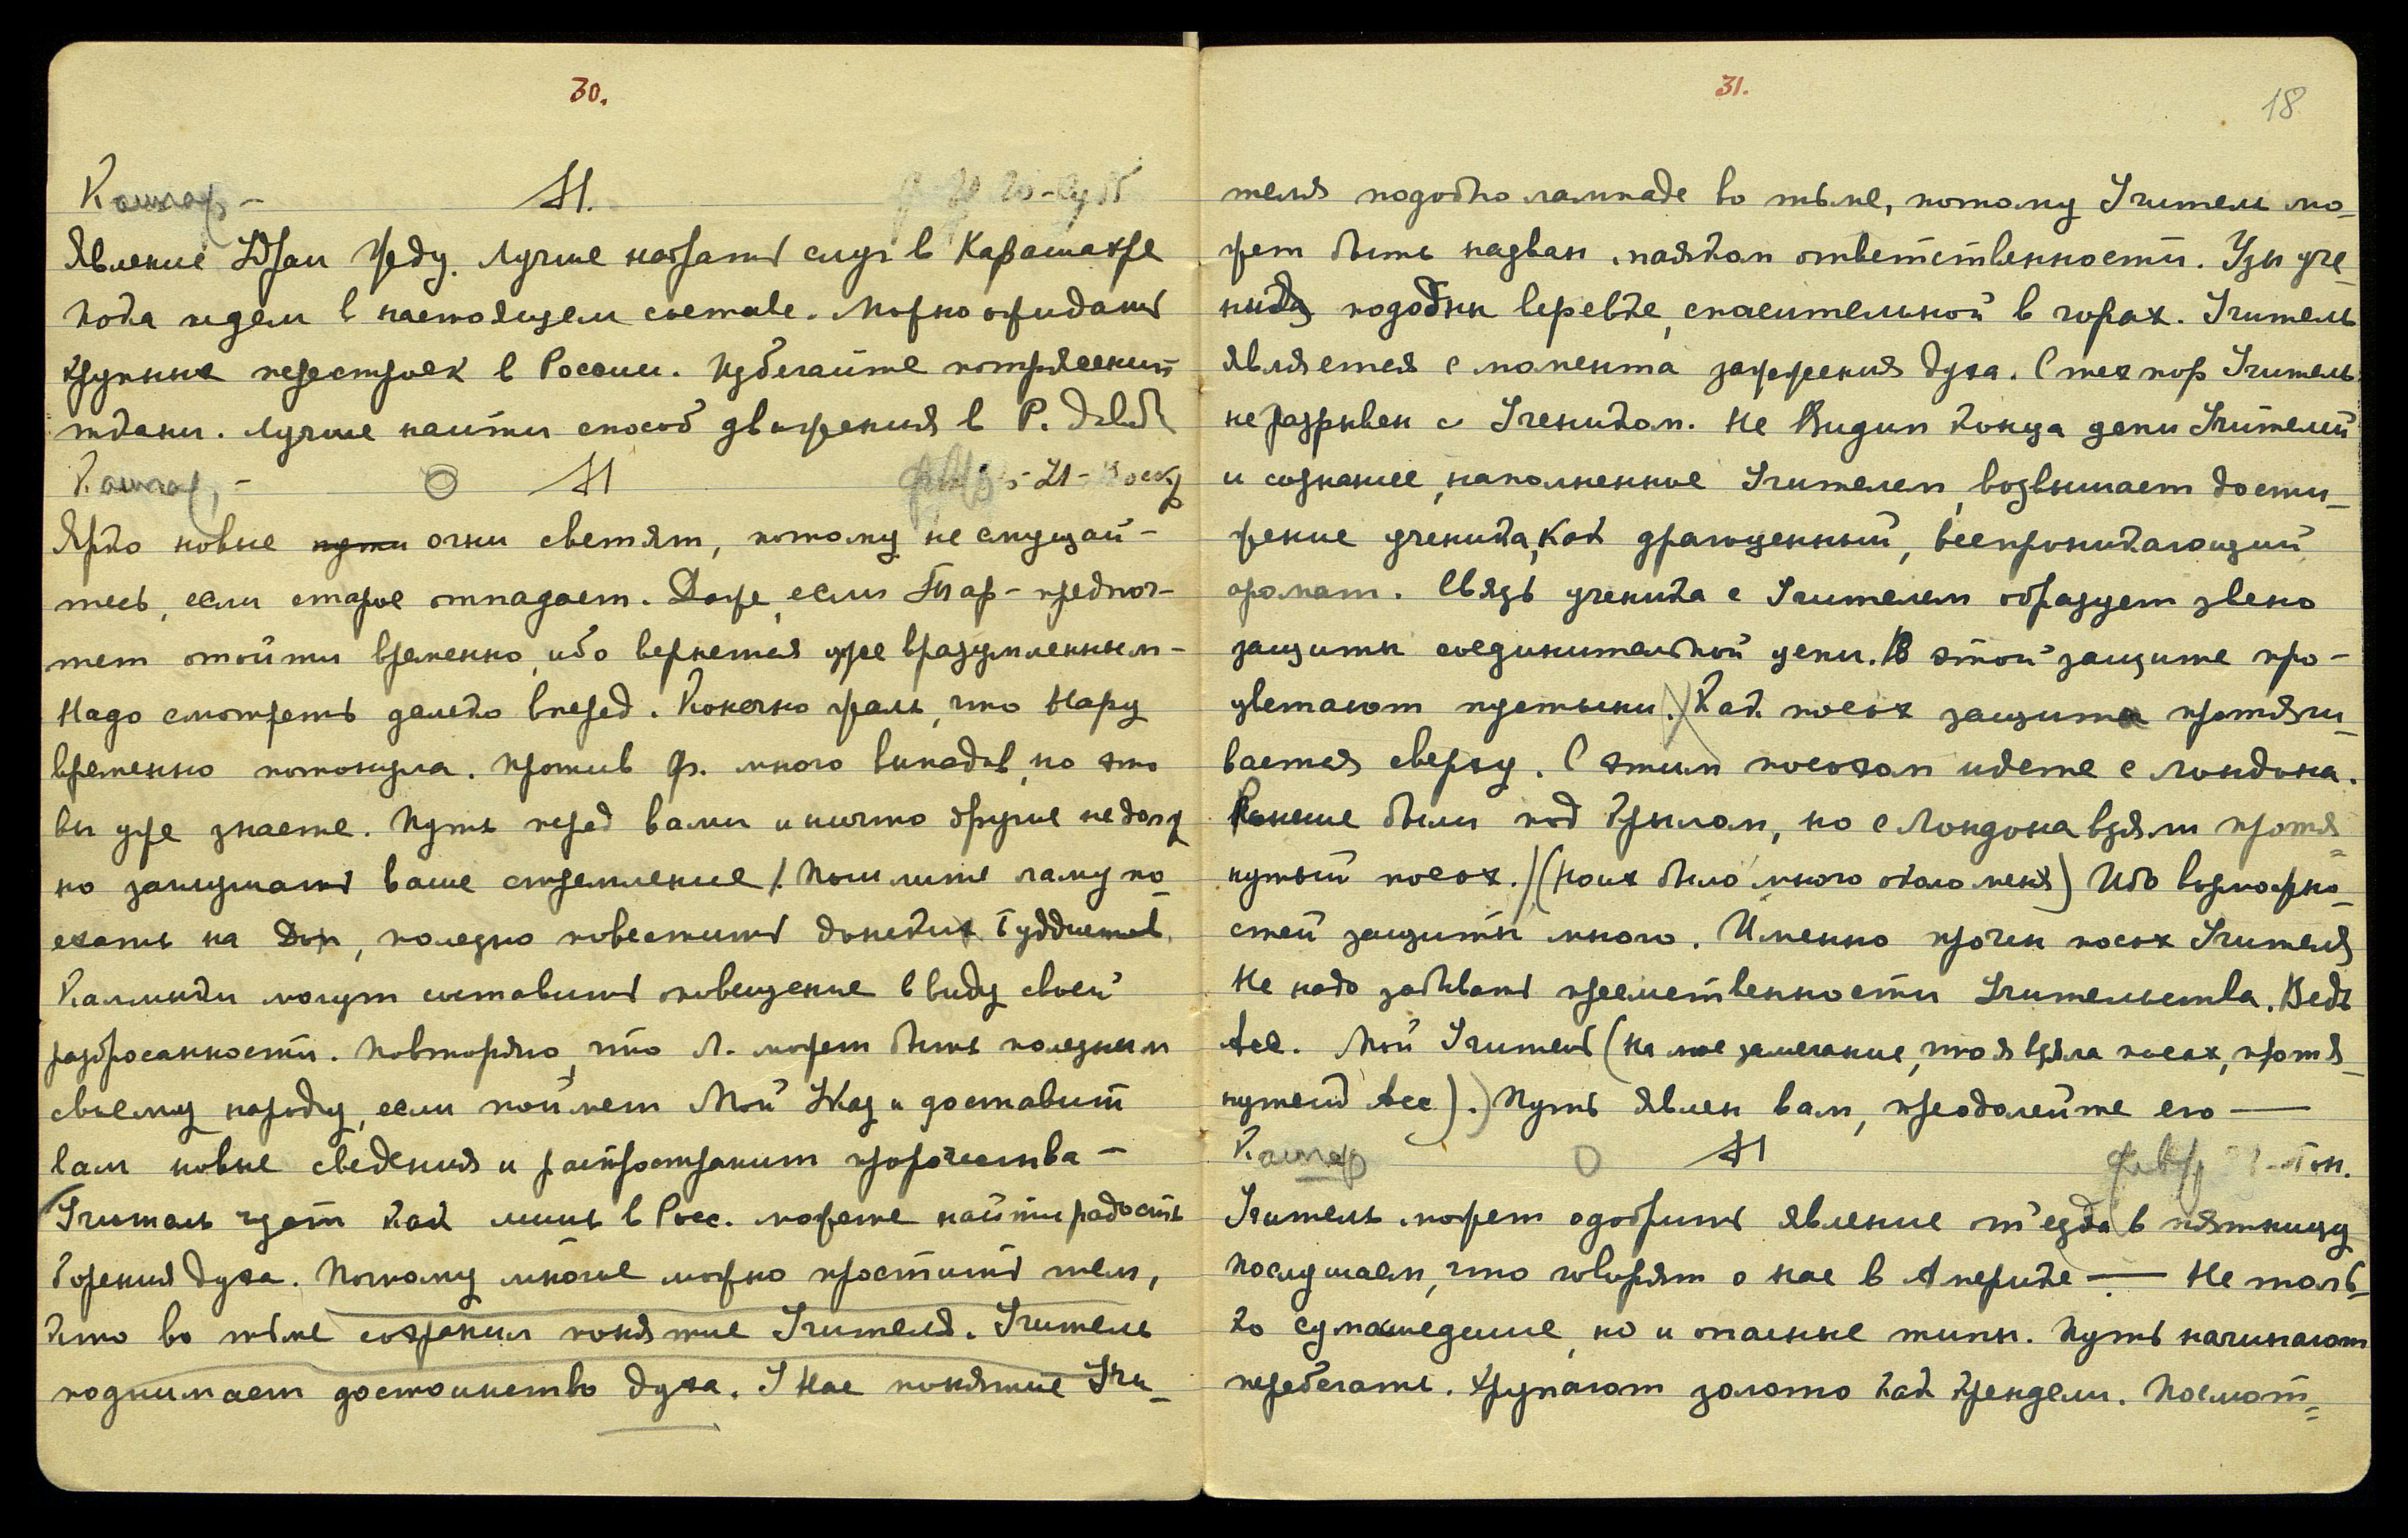 30.
Кашгар – М. 20 – Субб
Явление Удраи жду. Лучше набрать слуг в Карашахре
пока идем в настоящем составе. Можно ожидать
крупных перестроек в России. Избегайте потрясений
ткани. Лучше найти способ движения в Р.
Кашгар, – О М февр – 21 – Воскр
Ярко новые пути огни светят, потому не смущай-
тесь, если старое отпадает. Даже, если Тар – предпоч-
тет отойти временно, ибо вернется уже вразумленным –
Надо смотреть далеко вперед. Конечно жаль, что Нару
временно потонула. Против Ф. много выпадов, но это
вы уже знаете. Путь перед вами и ничто другие не долж
но заглушать ваше стремление /. Пошлите ламу по
ехать на Дон, полезно повестить донских Буддистов.
Калмыки могут составить оповещение ввиду своей
разбросанности. Повторяю, что Л. может быть полезным
своему народу, если поймет Мой Указ и доставит
вам новые сведения и распространит пророчества –
Учитель чует как лишь в Росс. можете найти радость
Горения духа. Потому многое можно простить тем,
кто во тьме сохранил понятие Учителя. Учитель
поднимает достоинство духа. У Нас понятие Учи-
31.
18
теля подобно лампаде во тьме, потому Учитель мо-
жет быть назван маяком ответственности. Узы уче-
ника подобны веревке, спасительной в горах. Учитель
является с момента зажжения духа. С тех пор Учитель
не разрывен с Учеником. Не Видим конца цепи Учителей
и сознание, наполненное Учителем, возвышает дости-
жение ученика, Как драгоценный, всепроникающий
аромат. Связь ученика с Учителем образует звено
защиты соединительной цепи. В этой защите про-
цветают пустыни.) Как посох защита протяги-
вается сверху. С этим посохом идете с Лондона.
Раньше были под Крылом, но с Лондона взяли протя=
нутый посох.) (Коих было много около меня) Ибо возможно-
стей защиты много. Именно прочен посох Учителя
Не надо забывать преемственности Учительства. Ведь
Алл. Мой Учитель (на мое замечание, что я взяла посох, протя-
нутый Алл).) Путь явлен вам, преодолейте его —
Кашгар О М февр 22 – Пон.
Учитель может одобрить явление от'езда в пятницу
Послушаем, что говорят о нас в Америке — Не толь-
ко сумасшедшие, но и опасные типы. Путь начинают
перебегать. Хрупают золото как крендели. Посмот=